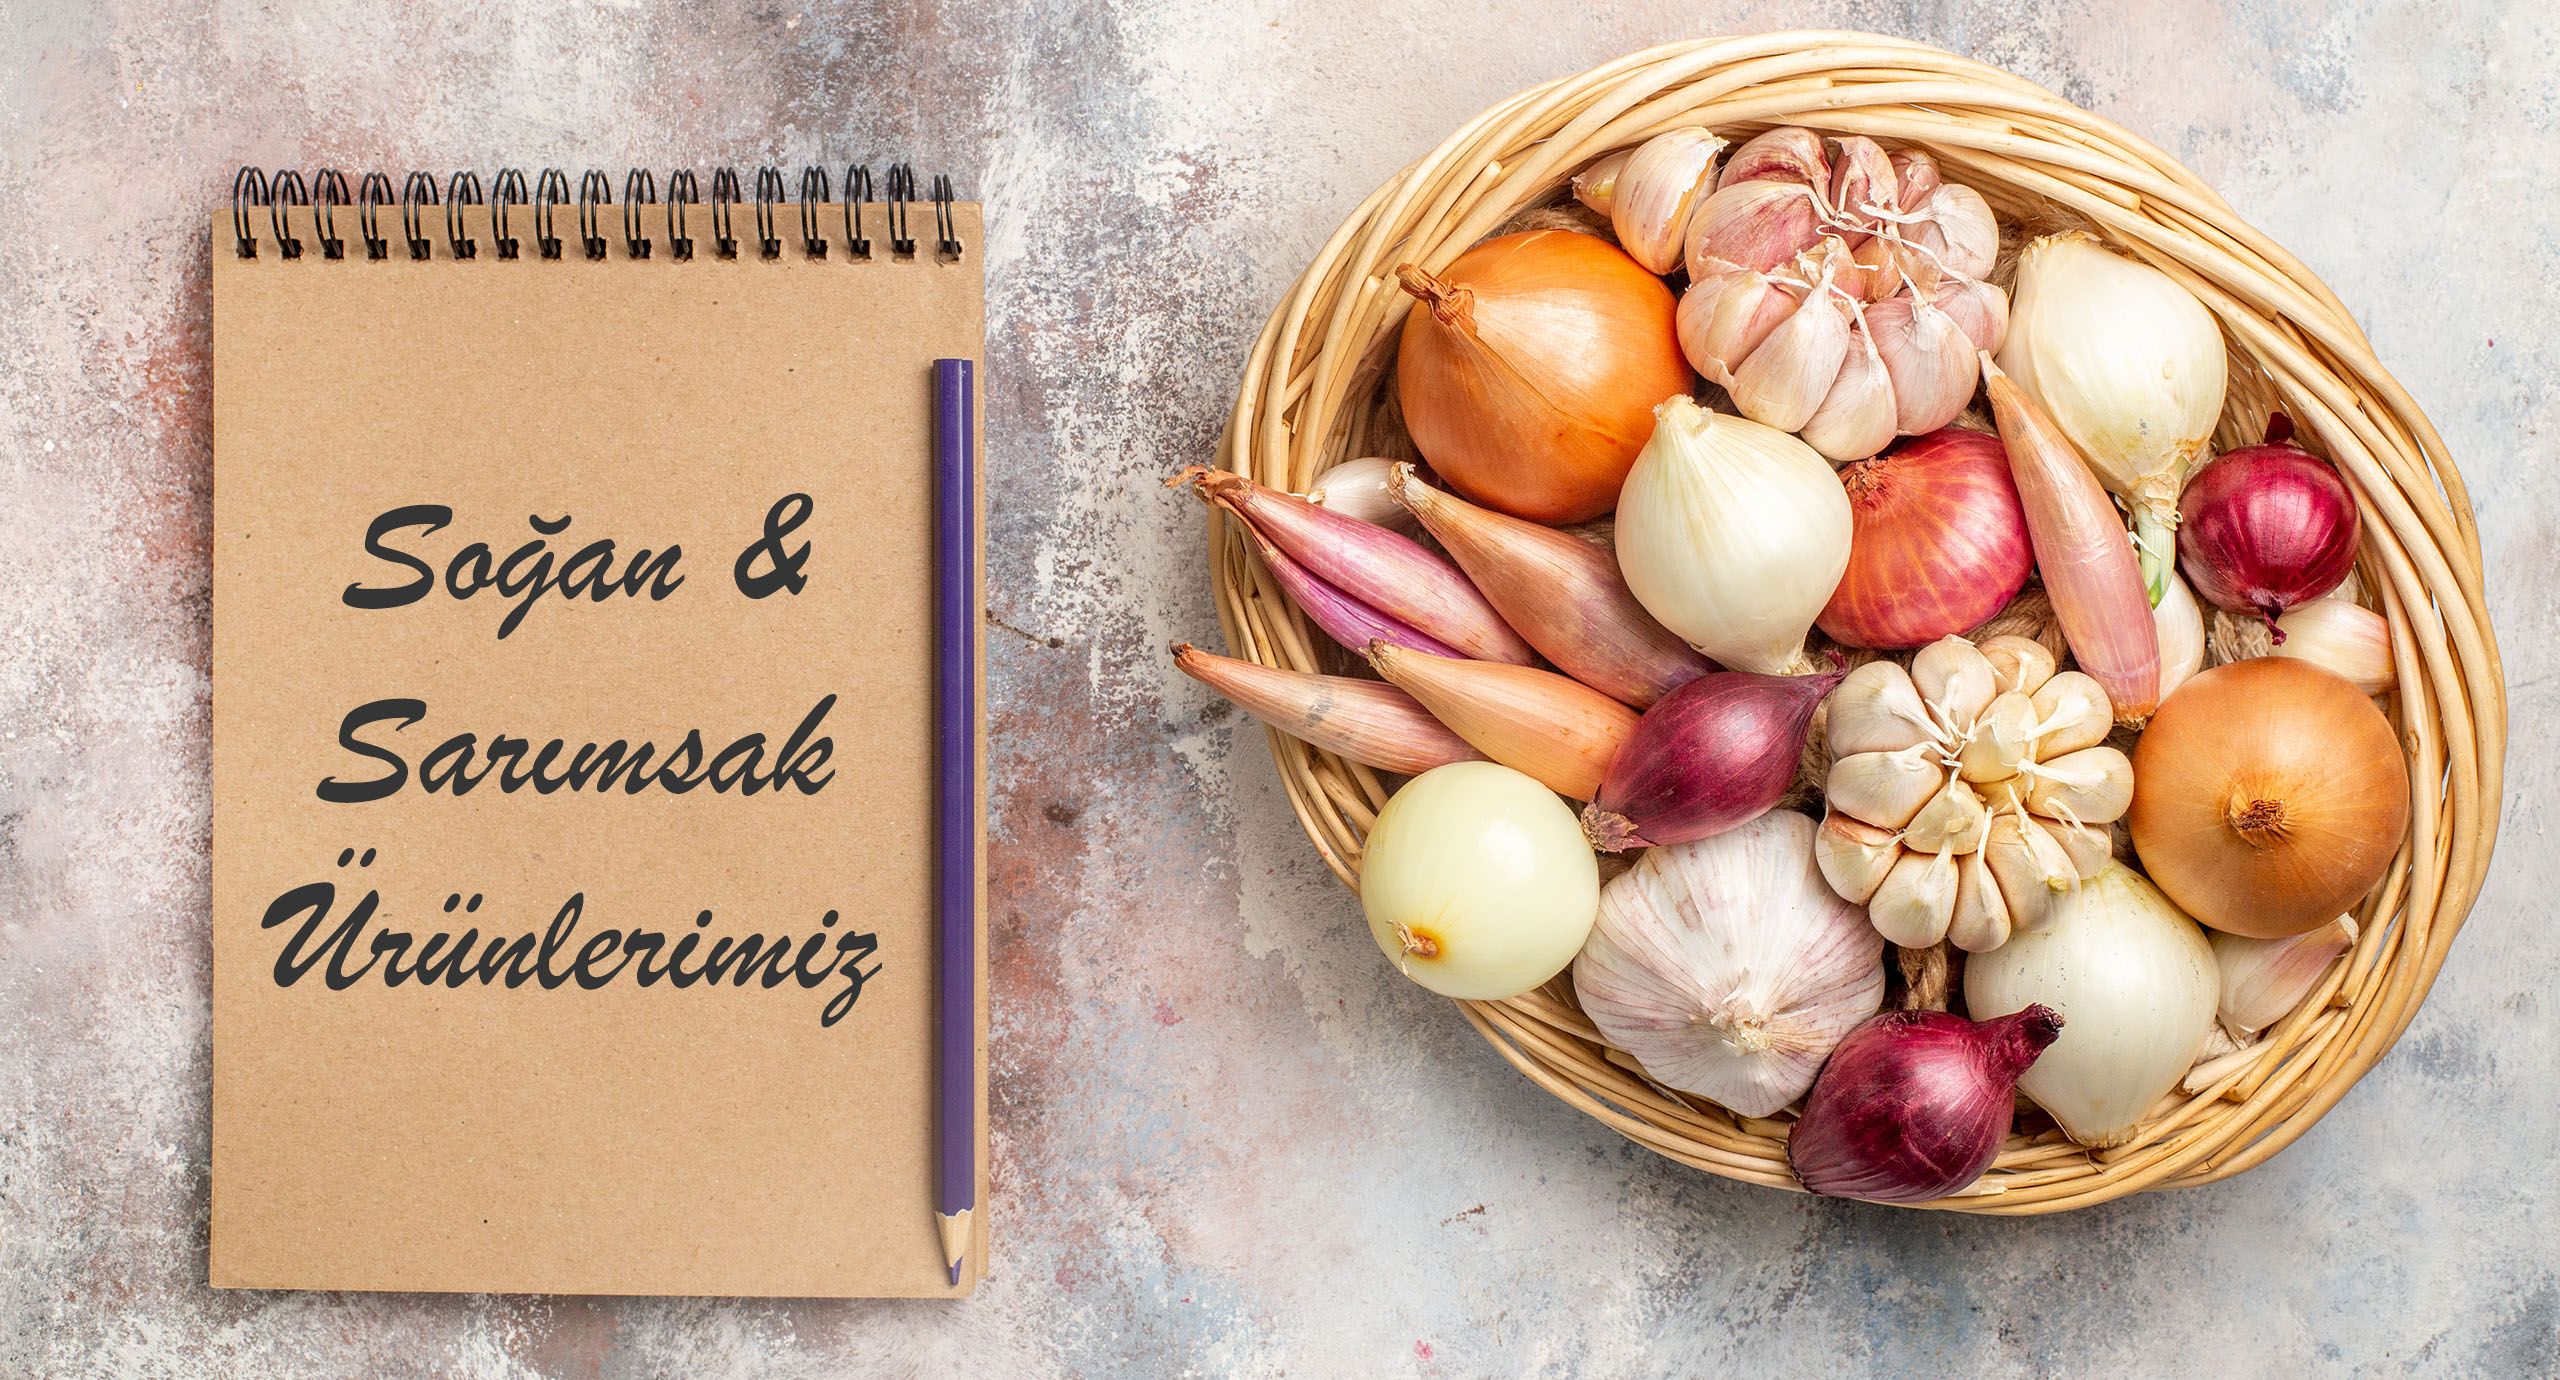 Soğan &
Sarımsak
Ürünlerimiz